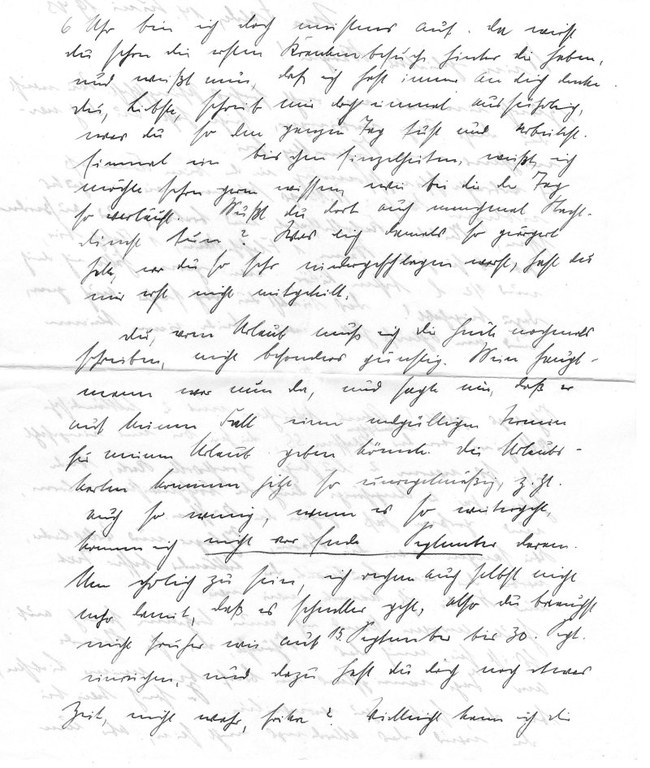 6 Uhr bin ich doch meistens auf. da wirst
du schon die ersten Krankenbesuche hinter dir haben,
und weißt nun, daß ich fast immer an dich denke.
du, Liebste, schreib mir doch einmal ausführlich,
was du so den ganzen Tag tust und arbeitest.
Einmal ein bischen Einzelheiten, weißt, ich
möchte schon gern wissen, wie bei dir der Tag
so verläuft. Mußt du dort auch manchmal Nacht-
dienst tun? Was dich damals so geärgert
hat, wo du so sehr niedergeschlagen warst, hast du
mir erst nicht mitgeteilt.
du, vom Urlaub muß ich dir heute nochmals
schreiben, nicht besonders günstig. Mein Haupt-
mann war nun da, und sagte mir, daß er
auf keinen Fall einen endgültigen Termin
für meinen Urlaub geben könnte. die Urlaubs-
karten kommen jetzt so unregelmäßig, z. Zt.
auch so wenig, wenn es so weitergeht,
komme ich nicht vor Ende September daran.
Um ehrlich zu sein, ich rechne auch selbst nicht
mehr damit, daß es schneller geht, also du brauchst
nicht früher wie auf 15 September bis 30. Sept.
einreichen, und dazu hast du doch noch etwas
Zeit, nicht wahr, ? Vielleicht kann ich dir